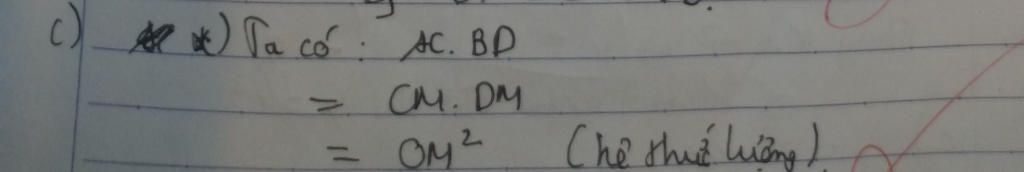 c) *) Ta có: AC. BD
= CM. DM
= OM² (hệ thức lượng)